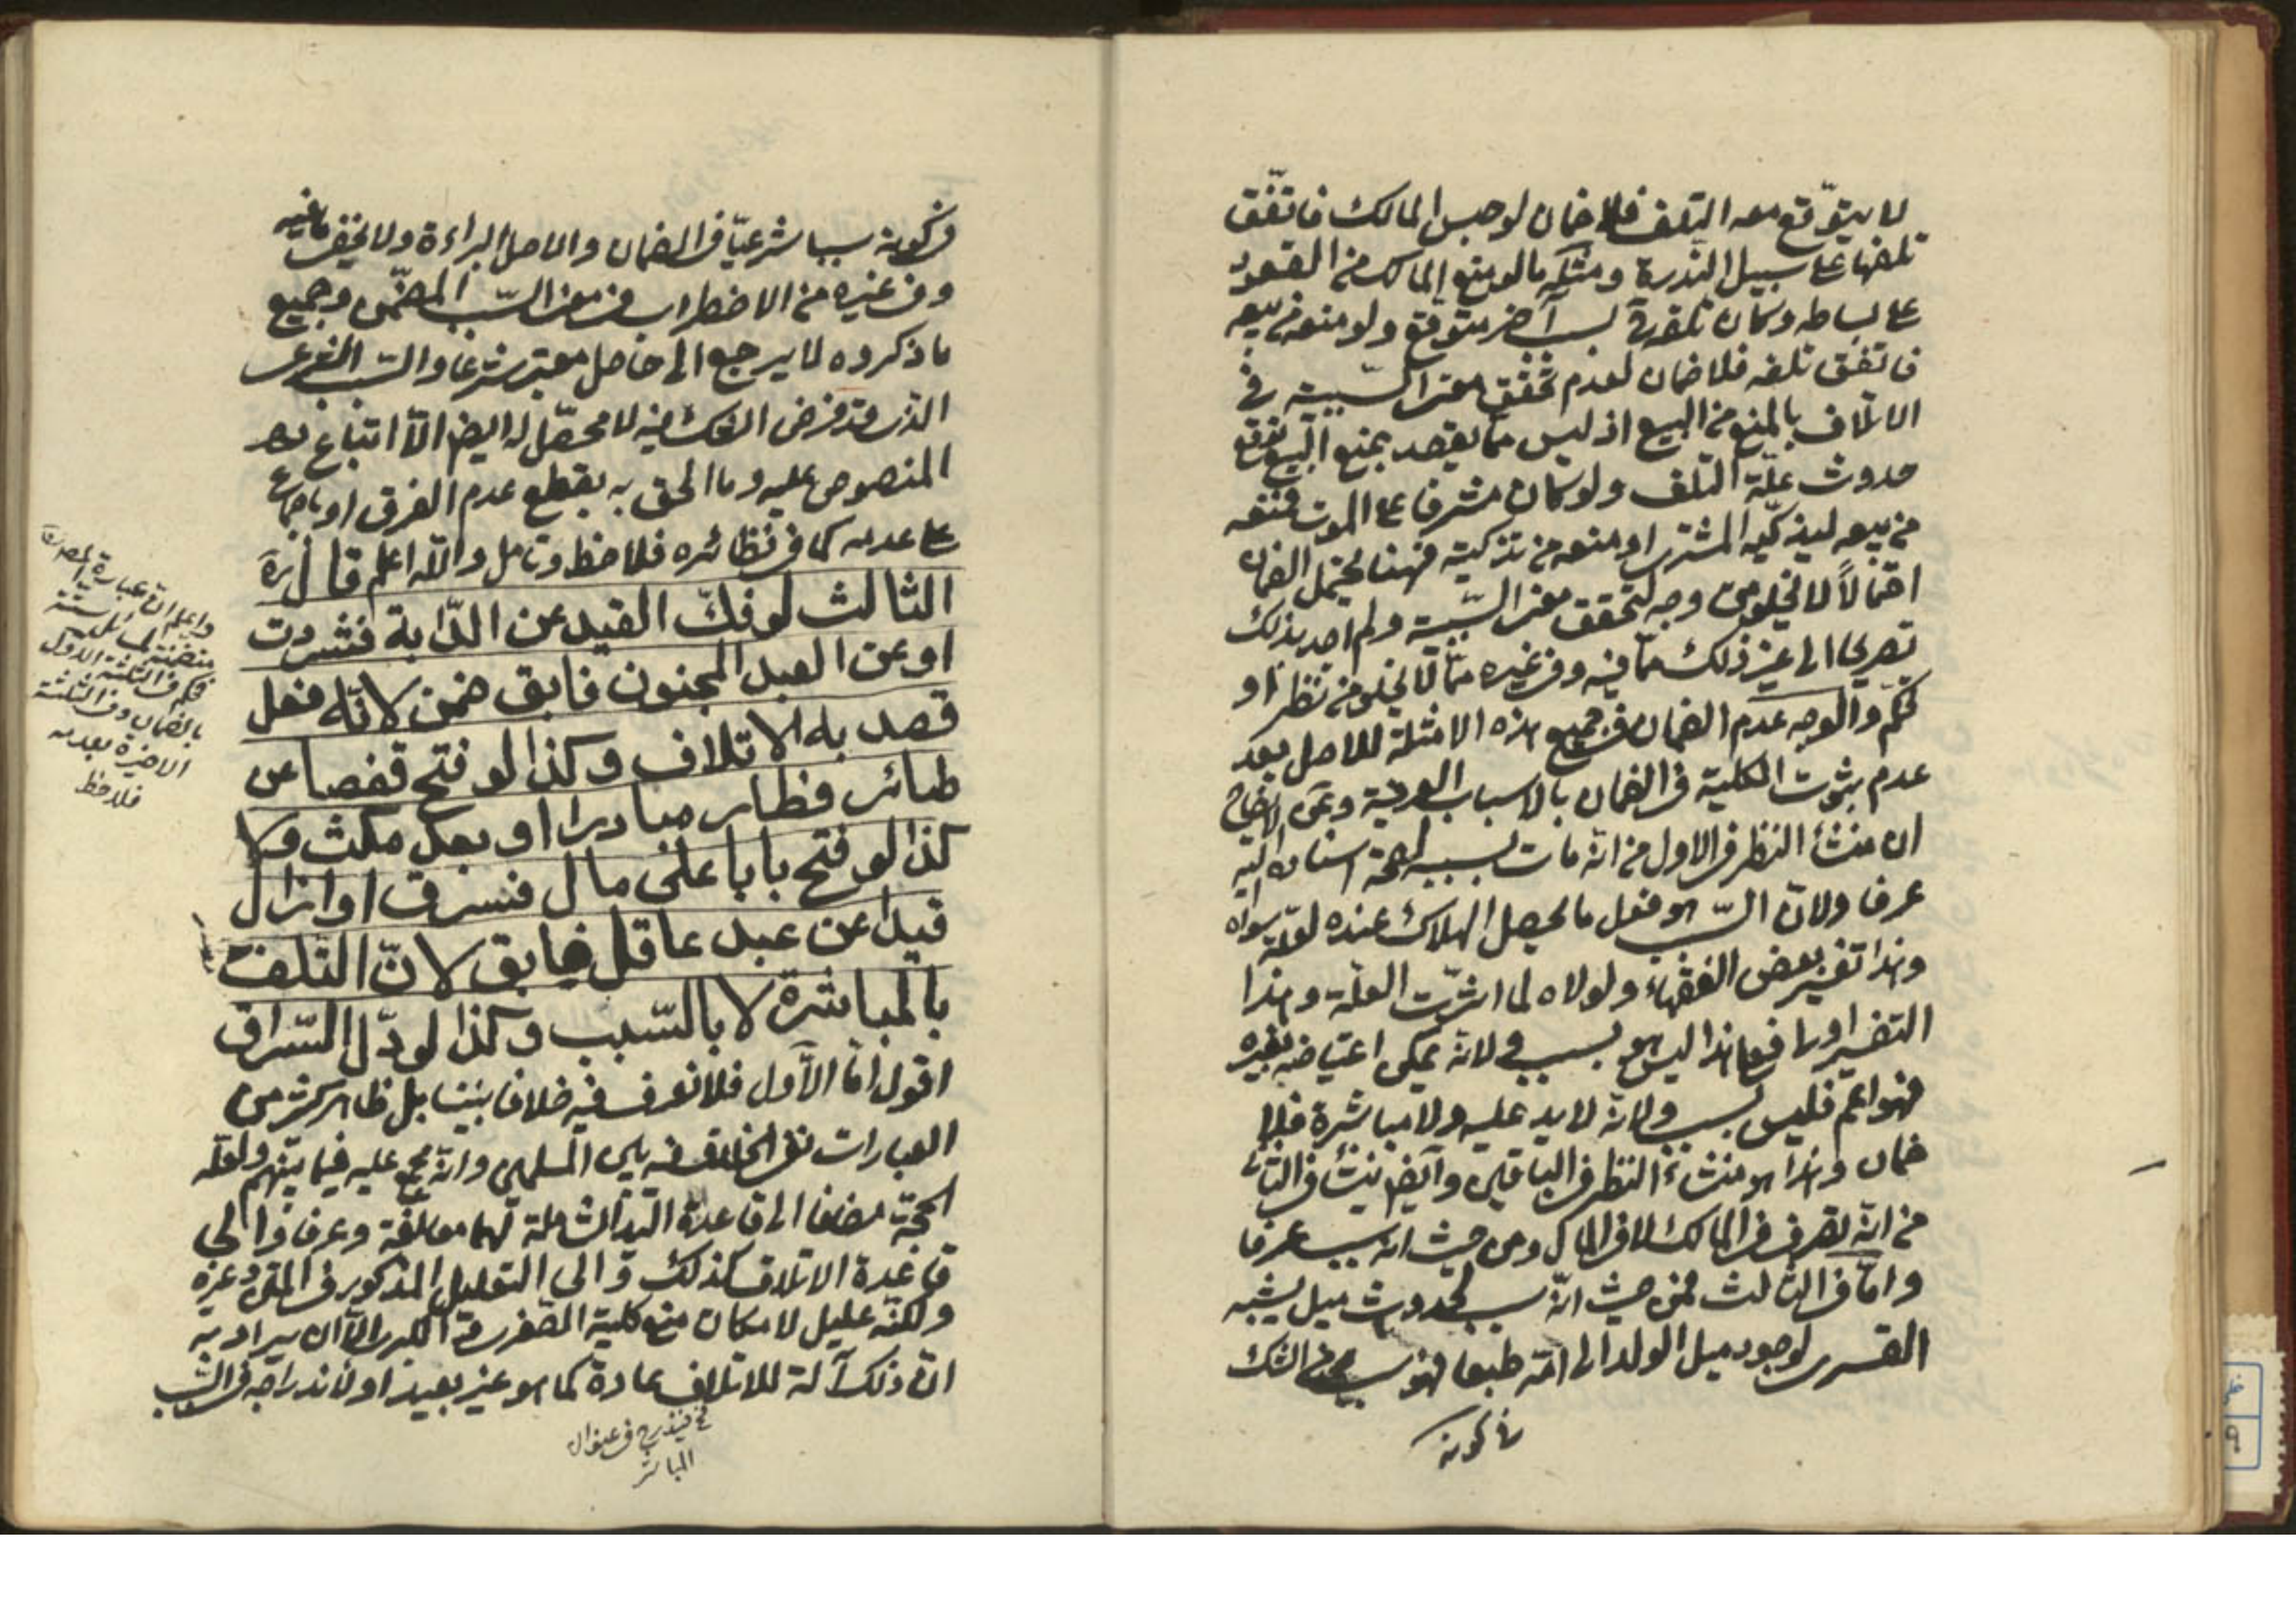 لا يتوقع معه التلف فلا ضمان لو حبس المالك فاتفق
تلفها على سبيل الندرة ومثله ما لو منع المالك من القعود
على بساطه وكان تلفه بسبب آخر متوقع ولو منعه من بيعه
فاتفق تلفه فلا ضمان لعدم تحقق معنى السببية في
الاتلاف بالمنع من البيع اذ ليس مما يقصد بمنع البيع توقع
حدوث علة التلف ولو كان مشرفا على الموت فمنعه
من بيعه ليذكيه المشتري او منعه من تذكيته فهنا يحتمل الضمان
احتمالاً لا يخلو من وجه لتحقق معنى السببية ولم اجد بذلك
تصريحا الى غير ذلك مما فيه وفي غيره مما لا يخلو من نظر او
تحكم والوجه عدم الضمان في جميع هذه الامثلة للاصل بعد
عدم ثبوت الكلية في الضمان بالاسباب العرفية وعن الايضاح
ان منشأ النظر في الاول من انه مات بسببه لصحة اسناده اليه
عرفا ولان السبب هو فعل ما يحصل الهلاك عنده لعلة سواه
وهذا تفسير بعض الفقهاء ولولاه لما اثرت العلة وهذا
التفسير اولى فعلى هذا ليس هو بسبب ولانه يمكن اعتياضه بغيره
فهو اعم فليس بسبب ولانه لا يد عليه ولا مباشرة فلا
ضمان وهذا هو منشاء النظر في الباقين وايضا ينشأ في الثاني
من انه تصرف في المالك لا في المال ومن حيث انه سبب عرفا
واما في الثالث فمن حيث انه سبب لحدوث ميل يشبه
القسري لوجود ميل الولد الى امه طبعا فهو سبب ومن الشك
في كونه
في كونه سببا شرعيا في الضمان والاصل البراءة ولا يخفى ما فيه
وفي غيره من الاضطراب في معنى السبب المضمن وجميع
ما ذكروه لا يرجع الى حاصل معتبر شرعا والسبب الشرعي
الذي قد فرض الشك فيه لا محصل له ايضا الا اتباع
المنصوص عليه وما الحق به بقطع عدم الفرق او باجماع
على عدمه كما في نظائره فلاحظ وتامل والله اعلم قال
الثالث لو فكّ القيد عن الدّابة فشردت
او عن العبد المجنون فابق ضمن لانّه فعل
قصد به الاتلاف وكذا لو فتح قفصا عن
طائر فطار مبادرا او بعد مكث ولا
كذا لو فتح بابا على مال فسرق او ازال
قيدا عن عبد عاقل فابق لانّ التّلف
بالمباشرة لا بالسّبب وكذا لو دلّ السّراق
اقول اما الاول فلا نعرف فيه خلافا بيننا بل ظاهر كثير من
العبارات نفي الخلاف فيه بين المسلمين وانه مجمع عليه فيما بينهم ولعله
الحجة مضافا الى قاعدة اليد الشاملة لهما معا لغة وعرفا والى
قاعدة الاتلاف كذلك والى التعليل المذكور في المتن وغيره
ولكنه عليل لامكان منع كلية الصغرى او الكبرى الا ان يراد به
ان ذلك آلة للاتلاف عادة كما هو غير بعيد او لاندراجه في السبب
فيندرج في عنوان
المباشر
واعلم ان عبارة المصـ
متضمنة لمسائل ستة
فحكم في الثلثة الاول
بالضمان وفي الثلثة
الاخيرة بعدمه
فلاحظ